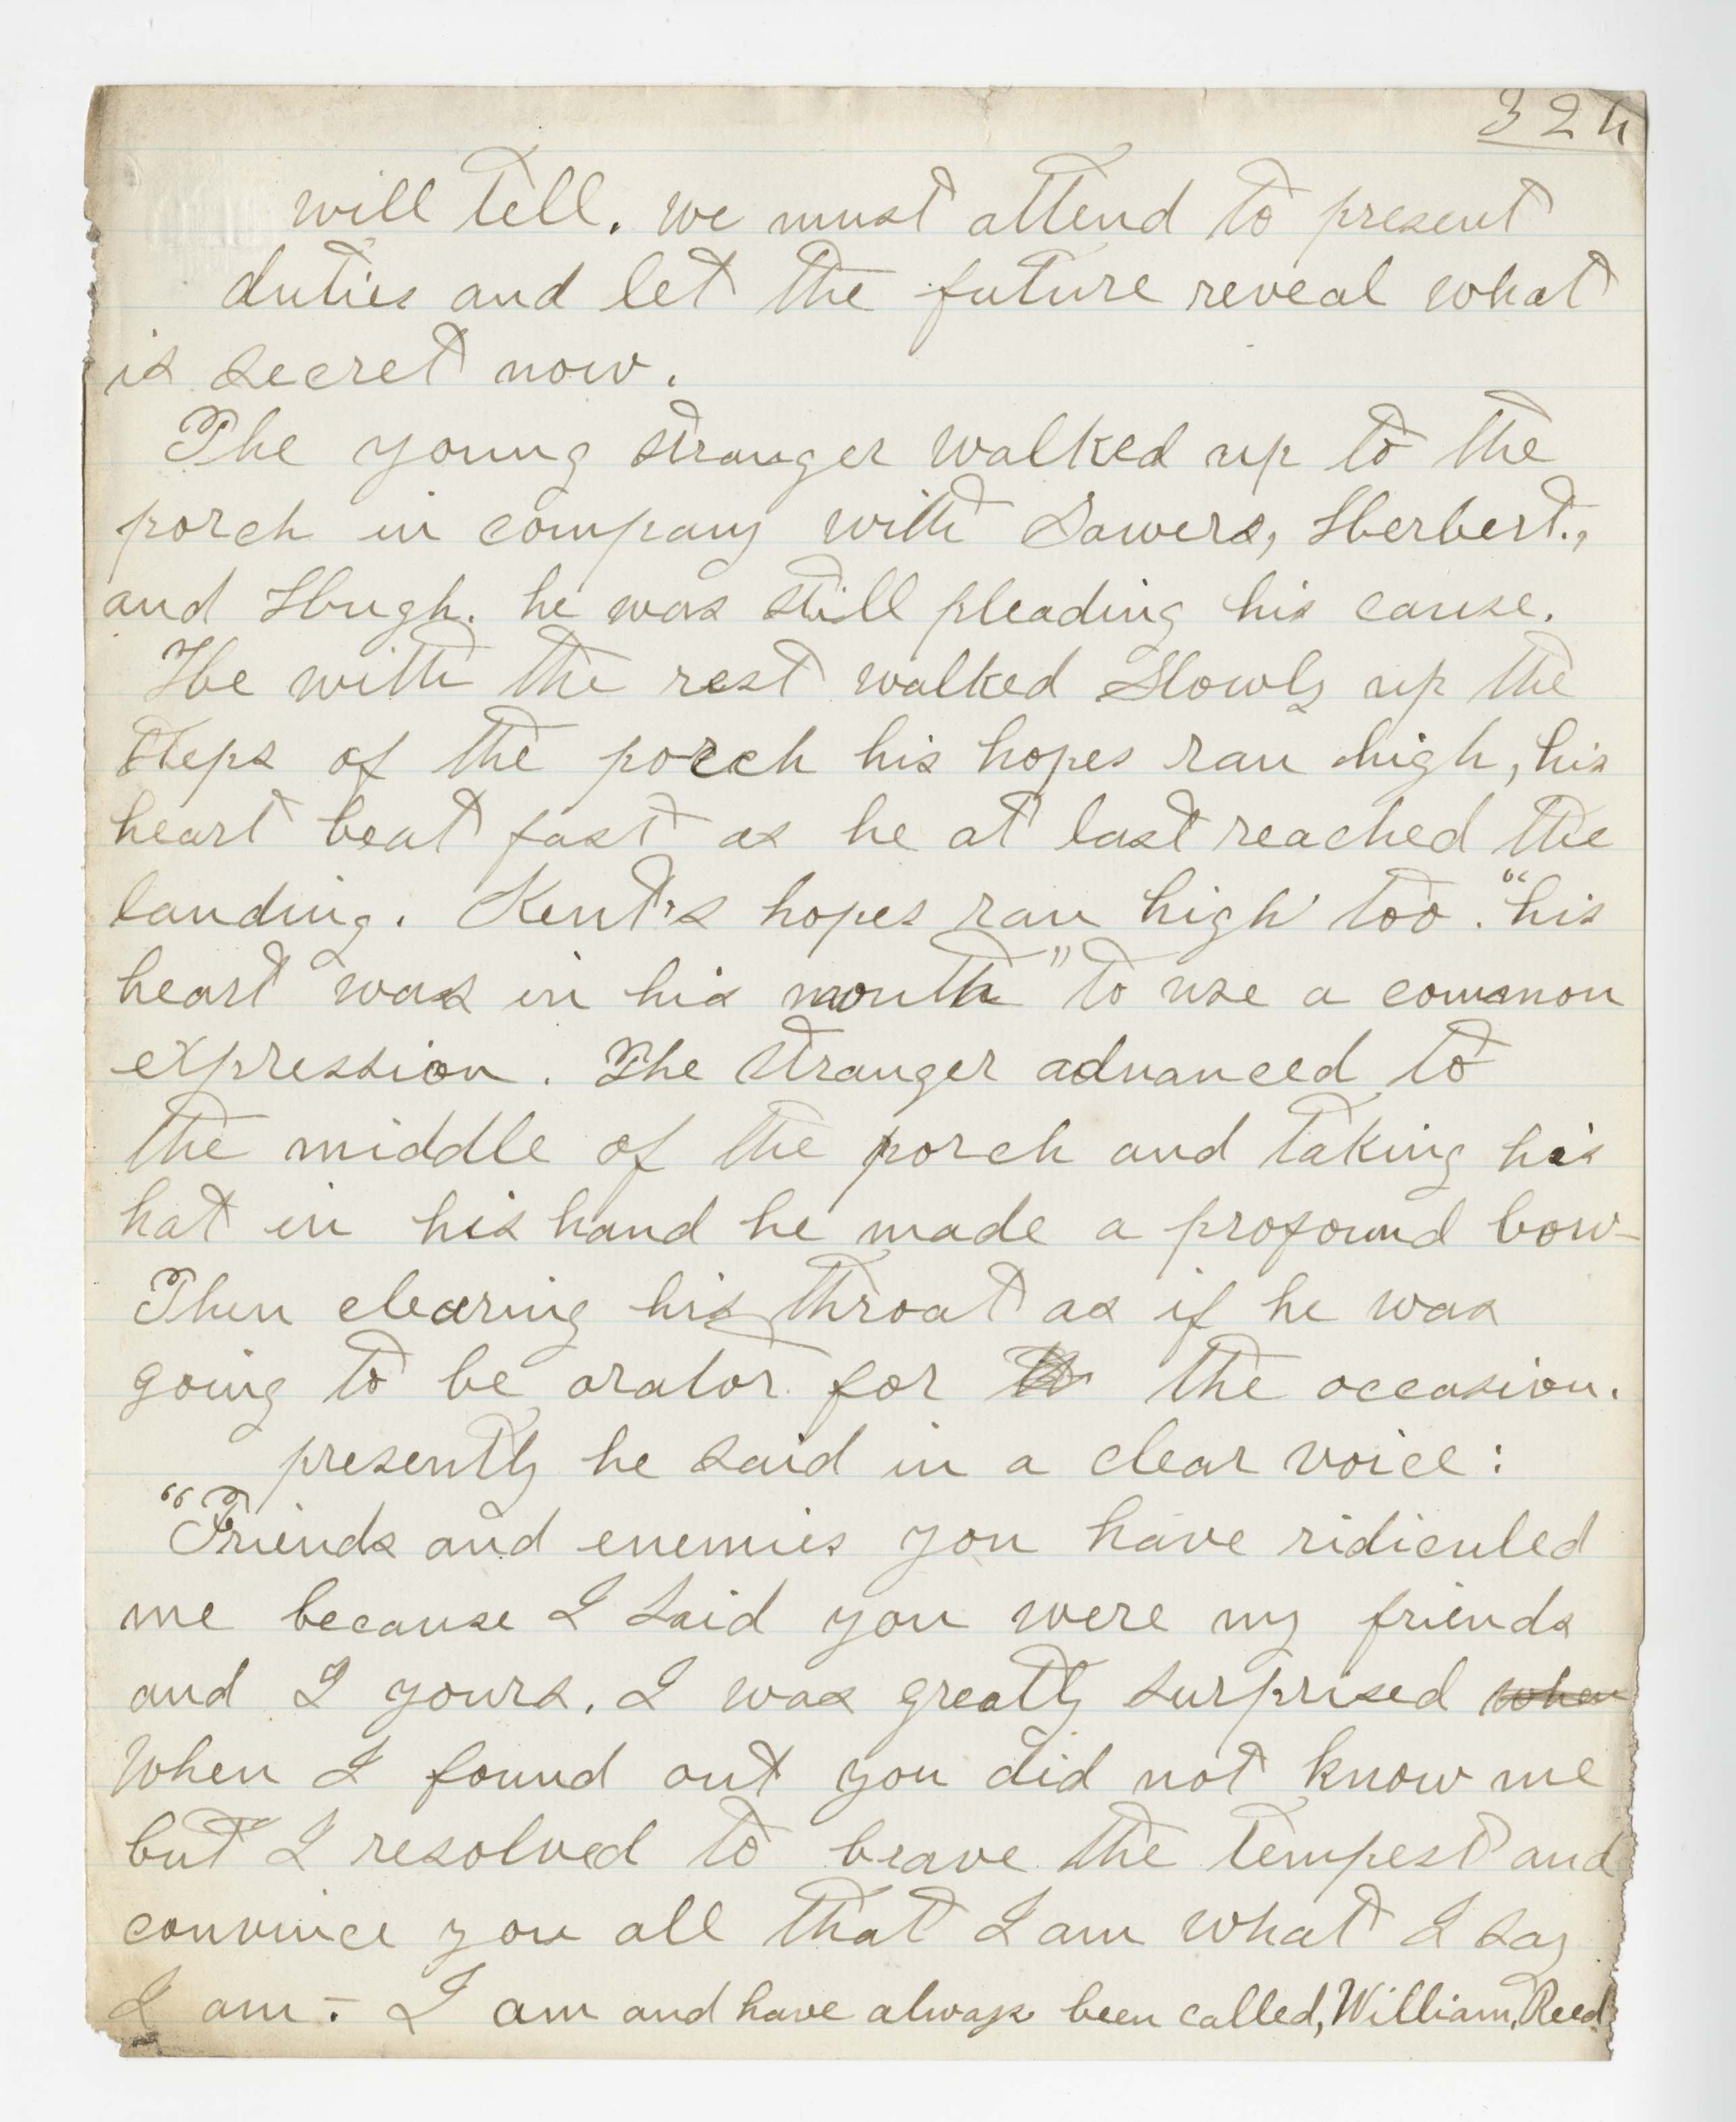 324
will tell. we must attend to present
duties and let the future reveal what
is secret now.
The young stranger walked up to the
porch in company with Sawers, Herbert.,
and Hugh. he was still pleading his cause.
He with the rest walked slowly up the
steps of the porch his hopes ran high, his
heart beat fast as he at last reached the
landing. Kent's hopes ran high too. "his
heart was in his mouth" to use a common
expression. The stranger advanced to
the middle of the porch and taking his
hat in his hand he made a profound bow-
Then clearing his throat as if he was
going to be orator for the occasion.
presently he said in a clear voice:
"Friends and enemies you have ridiculed
me because I said you were my friends
and I yours. I was greatly surprised when
when I found out you did not know me
but I resolved to brave the tempest and
convince you all that I am what I say
I am. - I am and have always been called, William, Reed